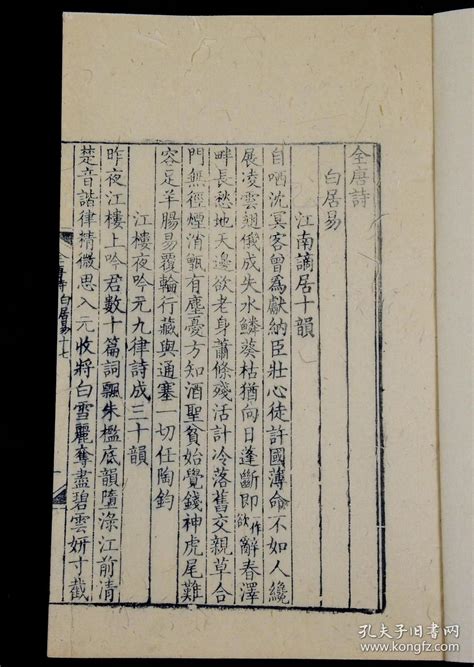 全唐詩
白居易
江南謫居十韻
自哂沈冥客曾為獻納臣壯心徒許國薄命不如人纔
展凌雲翅俄成失水鱗葵枯猶向日蓬斷即欲作辭春澤
畔長愁地天邊欲老身蕭條殘活計冷落舊交親草合
門無徑煙消甑有塵憂方知酒聖貧始覺錢神虎尾難
容足羊腸易覆輪行藏與通塞一切任陶鈞
江樓夜吟元九律詩成三十韻
昨夜江樓上吟君數十篇詞飄朱檻底韻墮淥江前清
楚音諧律精微思入元收將白雪麗奪盡碧雲妍寸截
全唐詩 白居易十七
孔夫子旧书网
www.kongfz.com